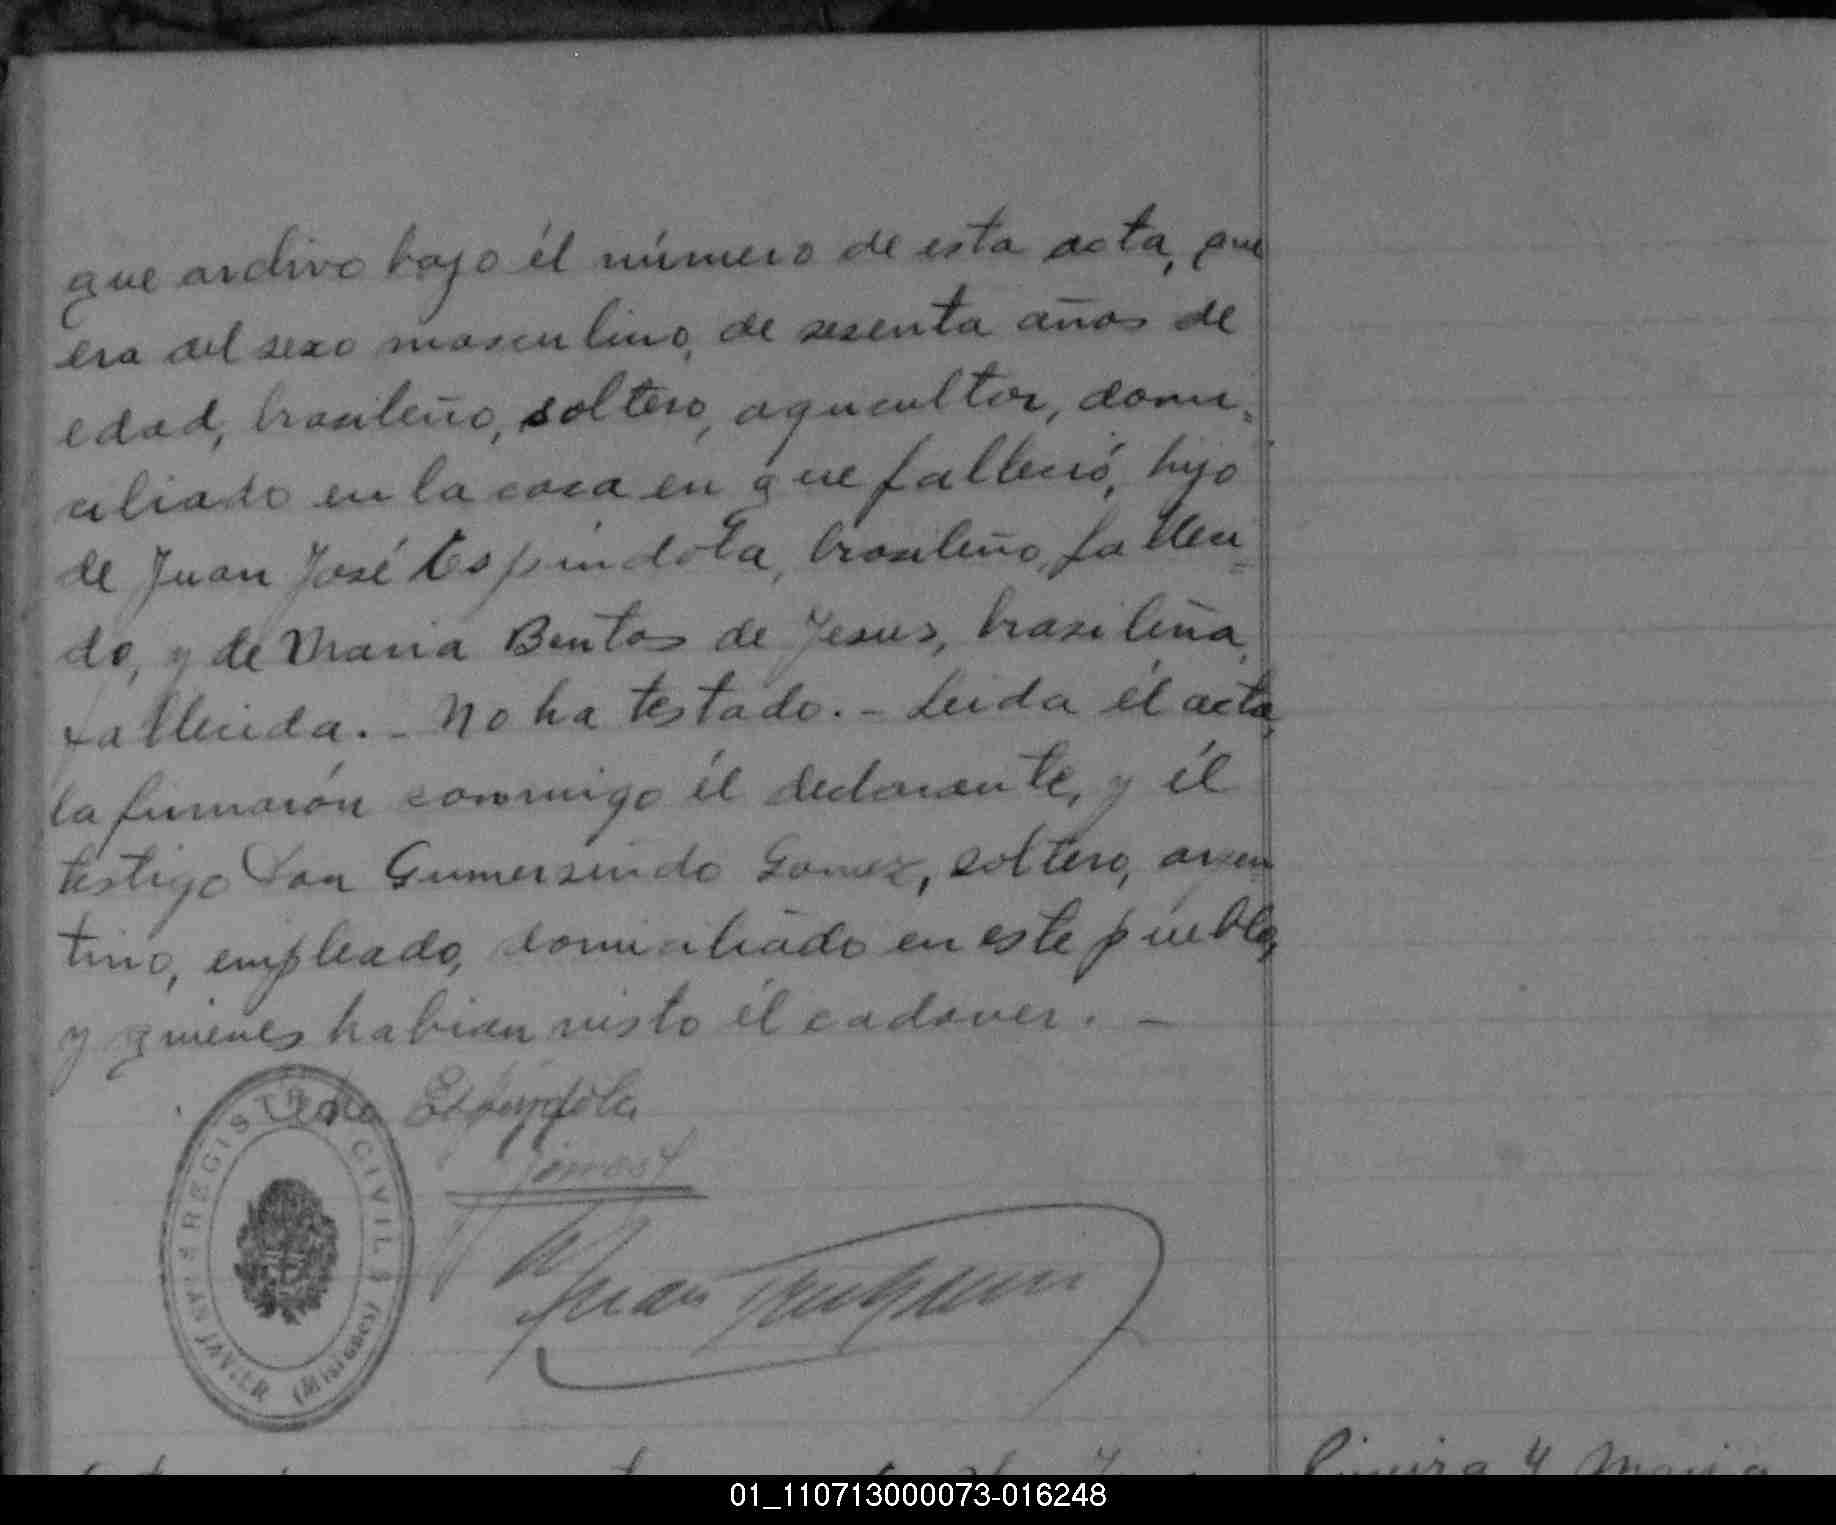 que archivo bajo él número de esta acta, que
era del sexo masculino, de sesenta años de
edad, brasileño, soltero, agricultor, domi-
ciliado en la casa en que falleció, hijo
de Juan José Espíndola, brasileño, falleci-
do, y de Maria Bentos de Jesus, brasileña,
fallecida. - No ha testado. - Leida él acta,
la firmarón conmigo él declarante, y él
testigo Don Gumersindo Gomez, soltero, argen
tino, empleado, domiciliado en este pueblo,
y quienes habian visto él cadaver. -
Espindola
REGISTRO CIVIL
SAN JAVIER (Misiones)
Juan
Maria
01_110713000073-016248